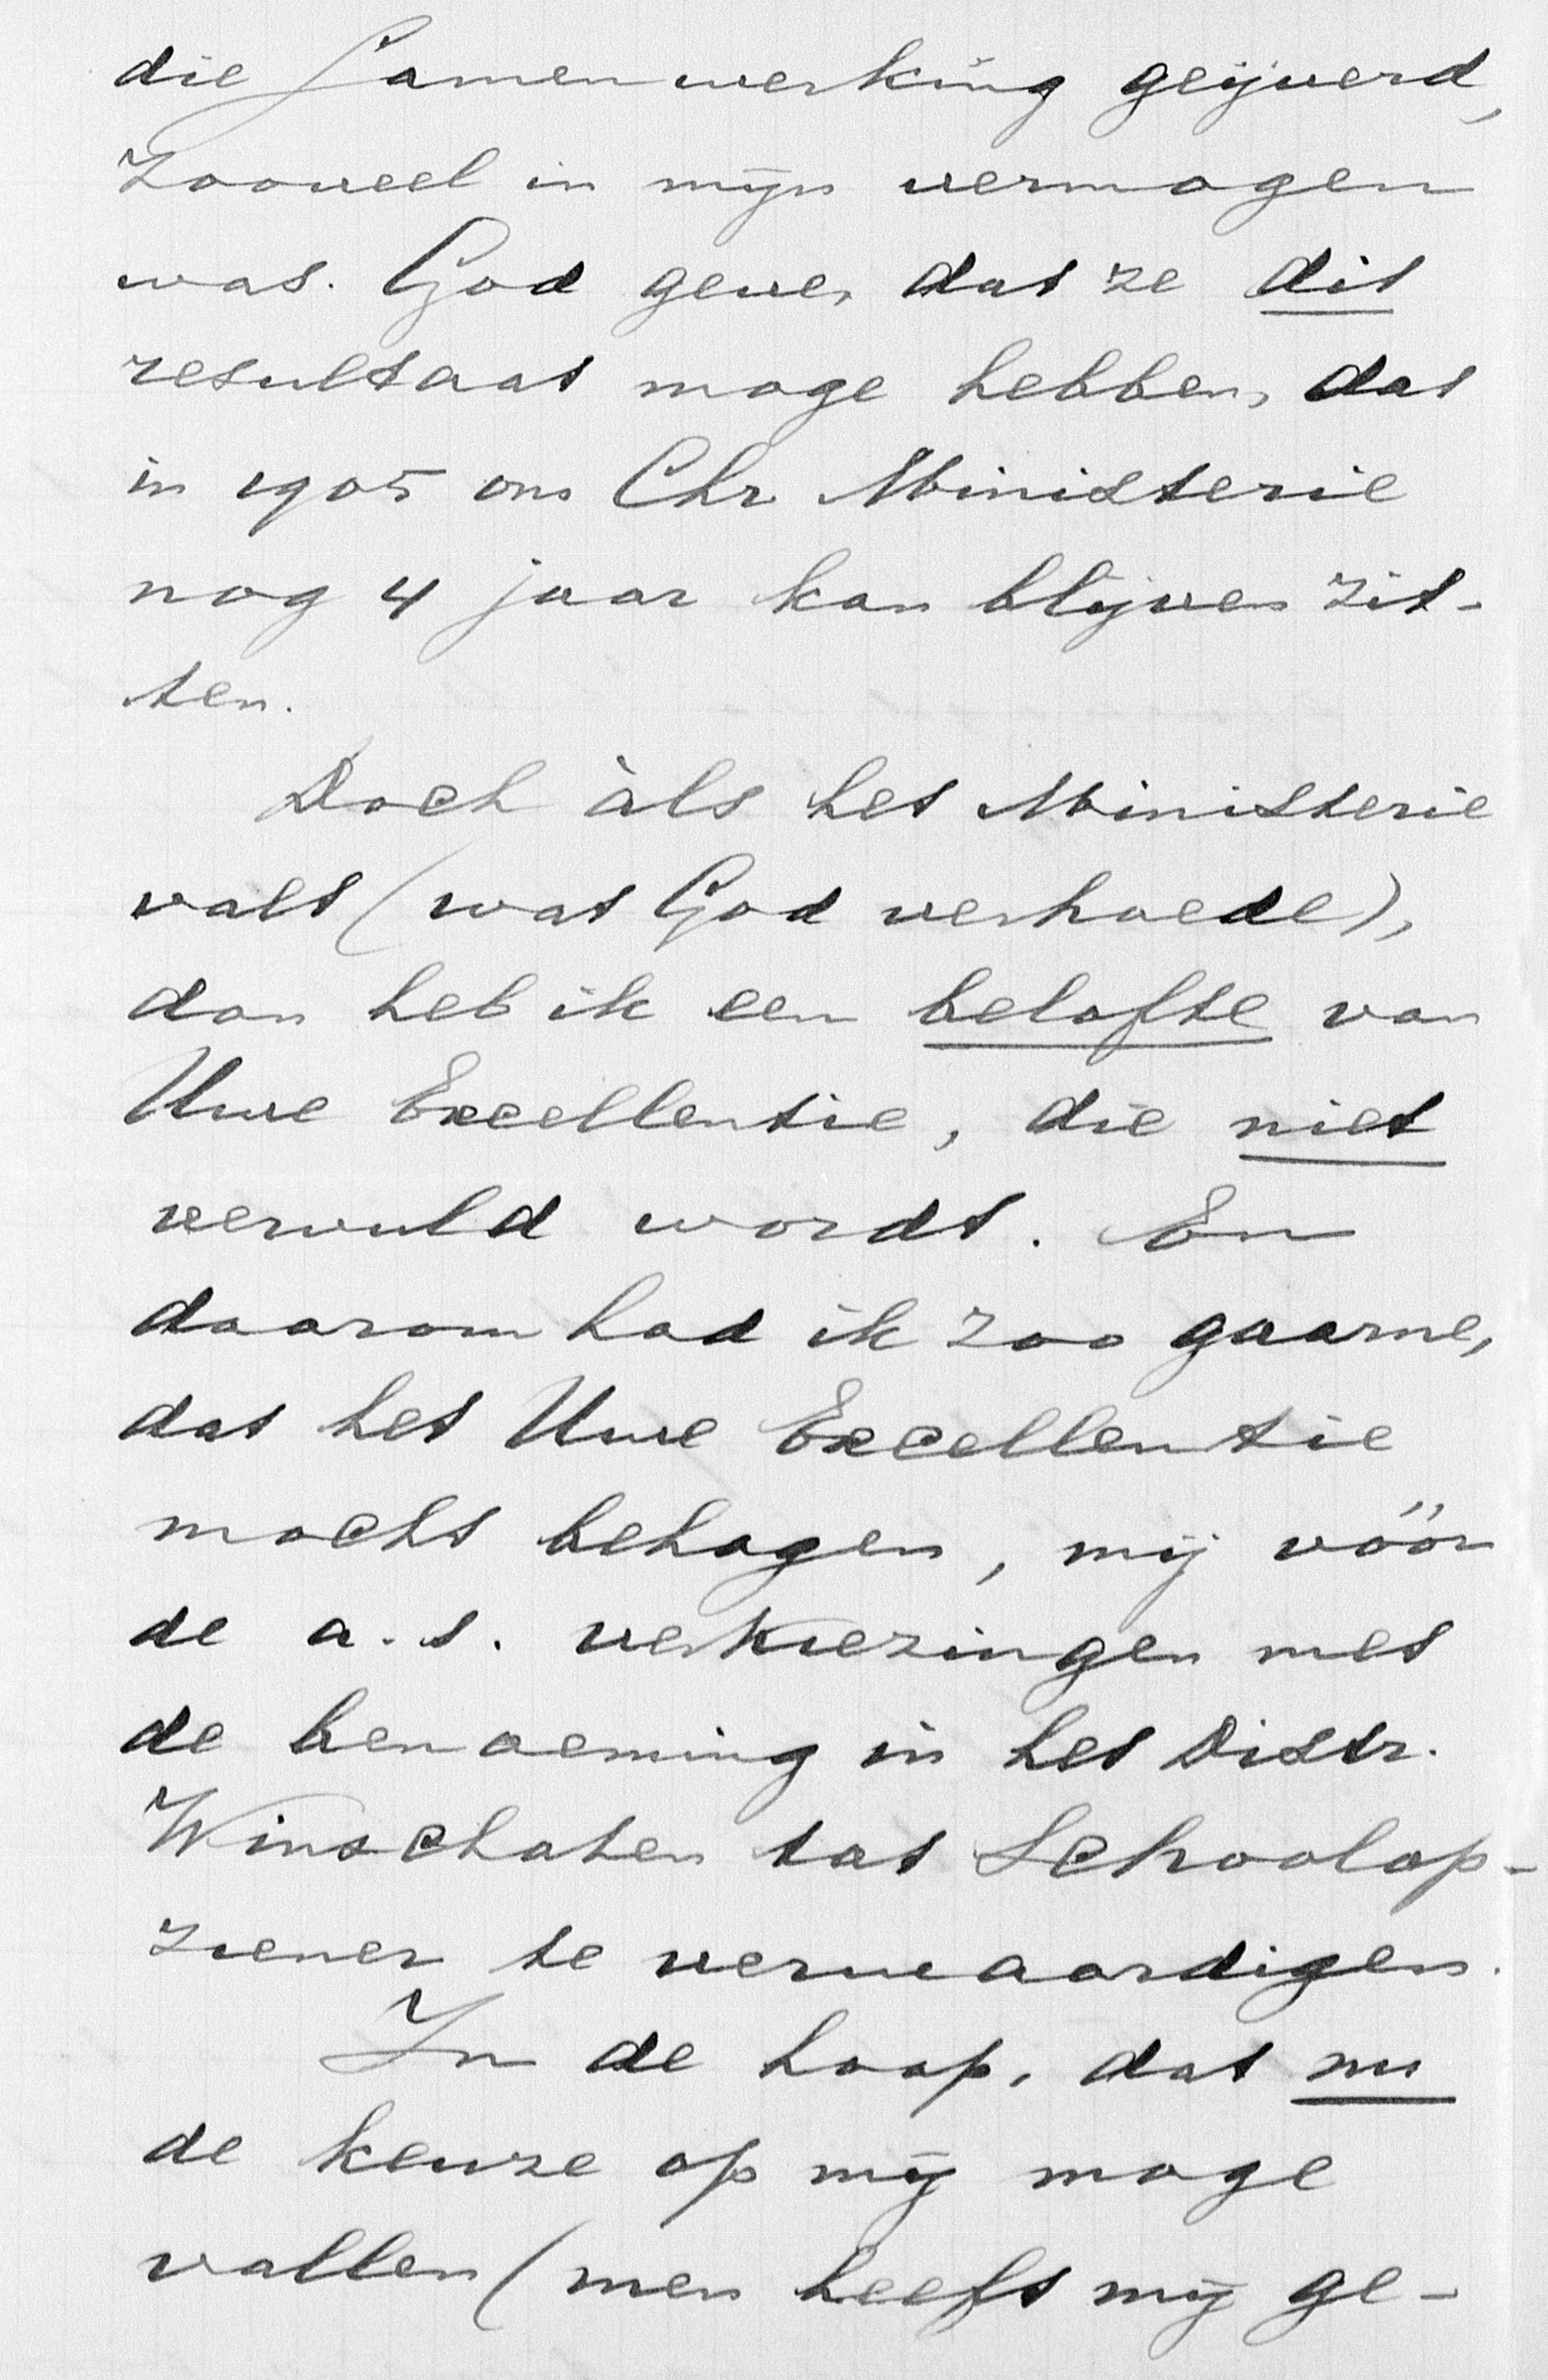 die Samenwerking geijverd,
Zooveel in mijn vermogen
was. God geve, dat ze dit
resultaat moge hebben, dat
in 1905 ons Chr. Ministerie
nog 4 jaar kan blijven zit-
ten.
Doch àls het Ministerie
valt (wat God verhoede),
dan heb ik een belofte van
Uwe Excellentie, die niet
vervuld wordt. En
daarom had ik zoo gaarne,
dat het Uwe Excellentie
mocht behagen, mij vóór
de a.s. verkiezingen met
de benoeming in het Distr.
Winschoten tot Schoolop-
ziener te verwaardigen.
In de hoop, dat nu
de keuze op mij moge
vallen (men heeft mij ge-